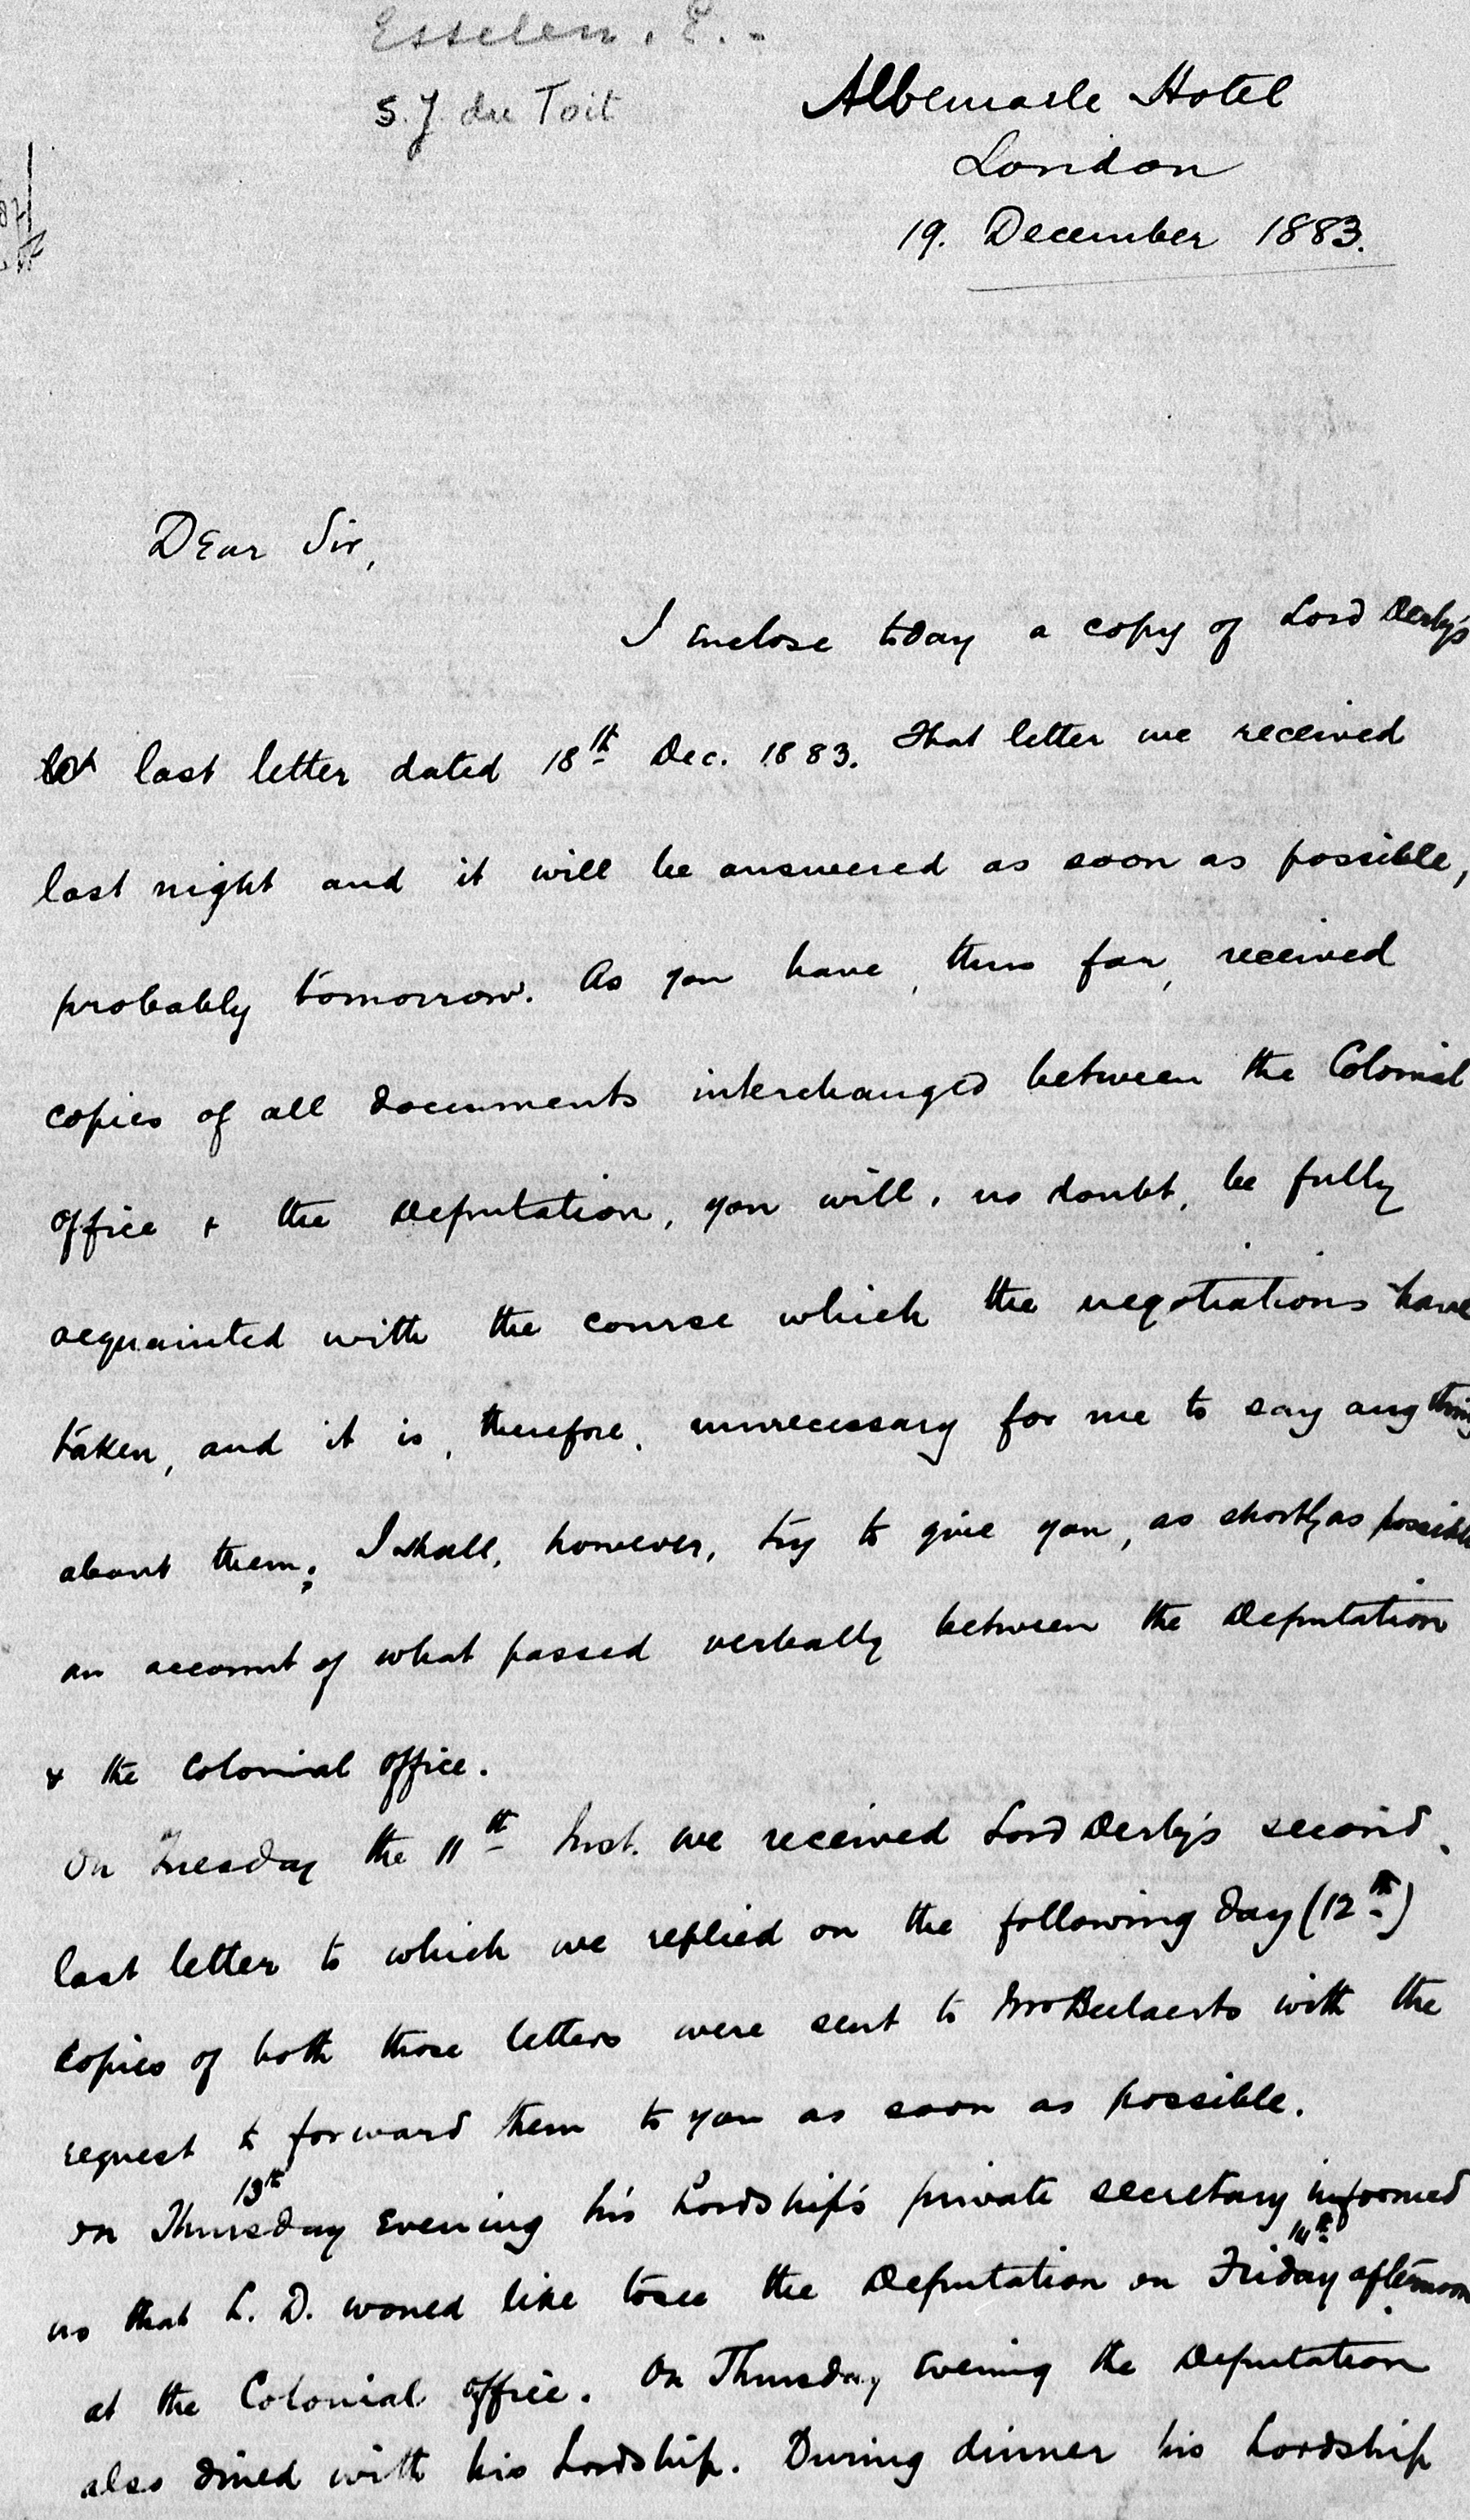 Esselen. E. -
S. J. du Toit
Albemarle Hotel
London
19. December 1883.
Dear Sir,
I enclose today a copy of Lord Derby's
last letter dated 18th Dec. 1883. That letter we received
last night and it will be answered as soon as possible,
probably tomorrow. As you have, thus far, received
copies of all documents interchanged between the Colonial
office & the Deputation, you will, no doubt, be fully
acquainted with the course which the negotiations have
taken, and it is, therefore, unnecessary for me to say anything
about them; I shall, however, try to give you, as shortly as possible
an account of what passed verbally between the Deputation
& the Colonial office.
On Tuesday the 11th Inst. we received Lord Derby's second,
last letter to which we replied on the following day (12th)
copies of both those letters were sent to Mr Beelaerts with the
request to forward them to you as soon as possible.
13th
on Thursday evening his Lordship's private secretary informed
14th
us that L. D. woued like to see the Deputation on Friday afternoon
at the Colonial office. On Thursday evening the Deputation
also dined with his Lordship. During dinner his Lordship